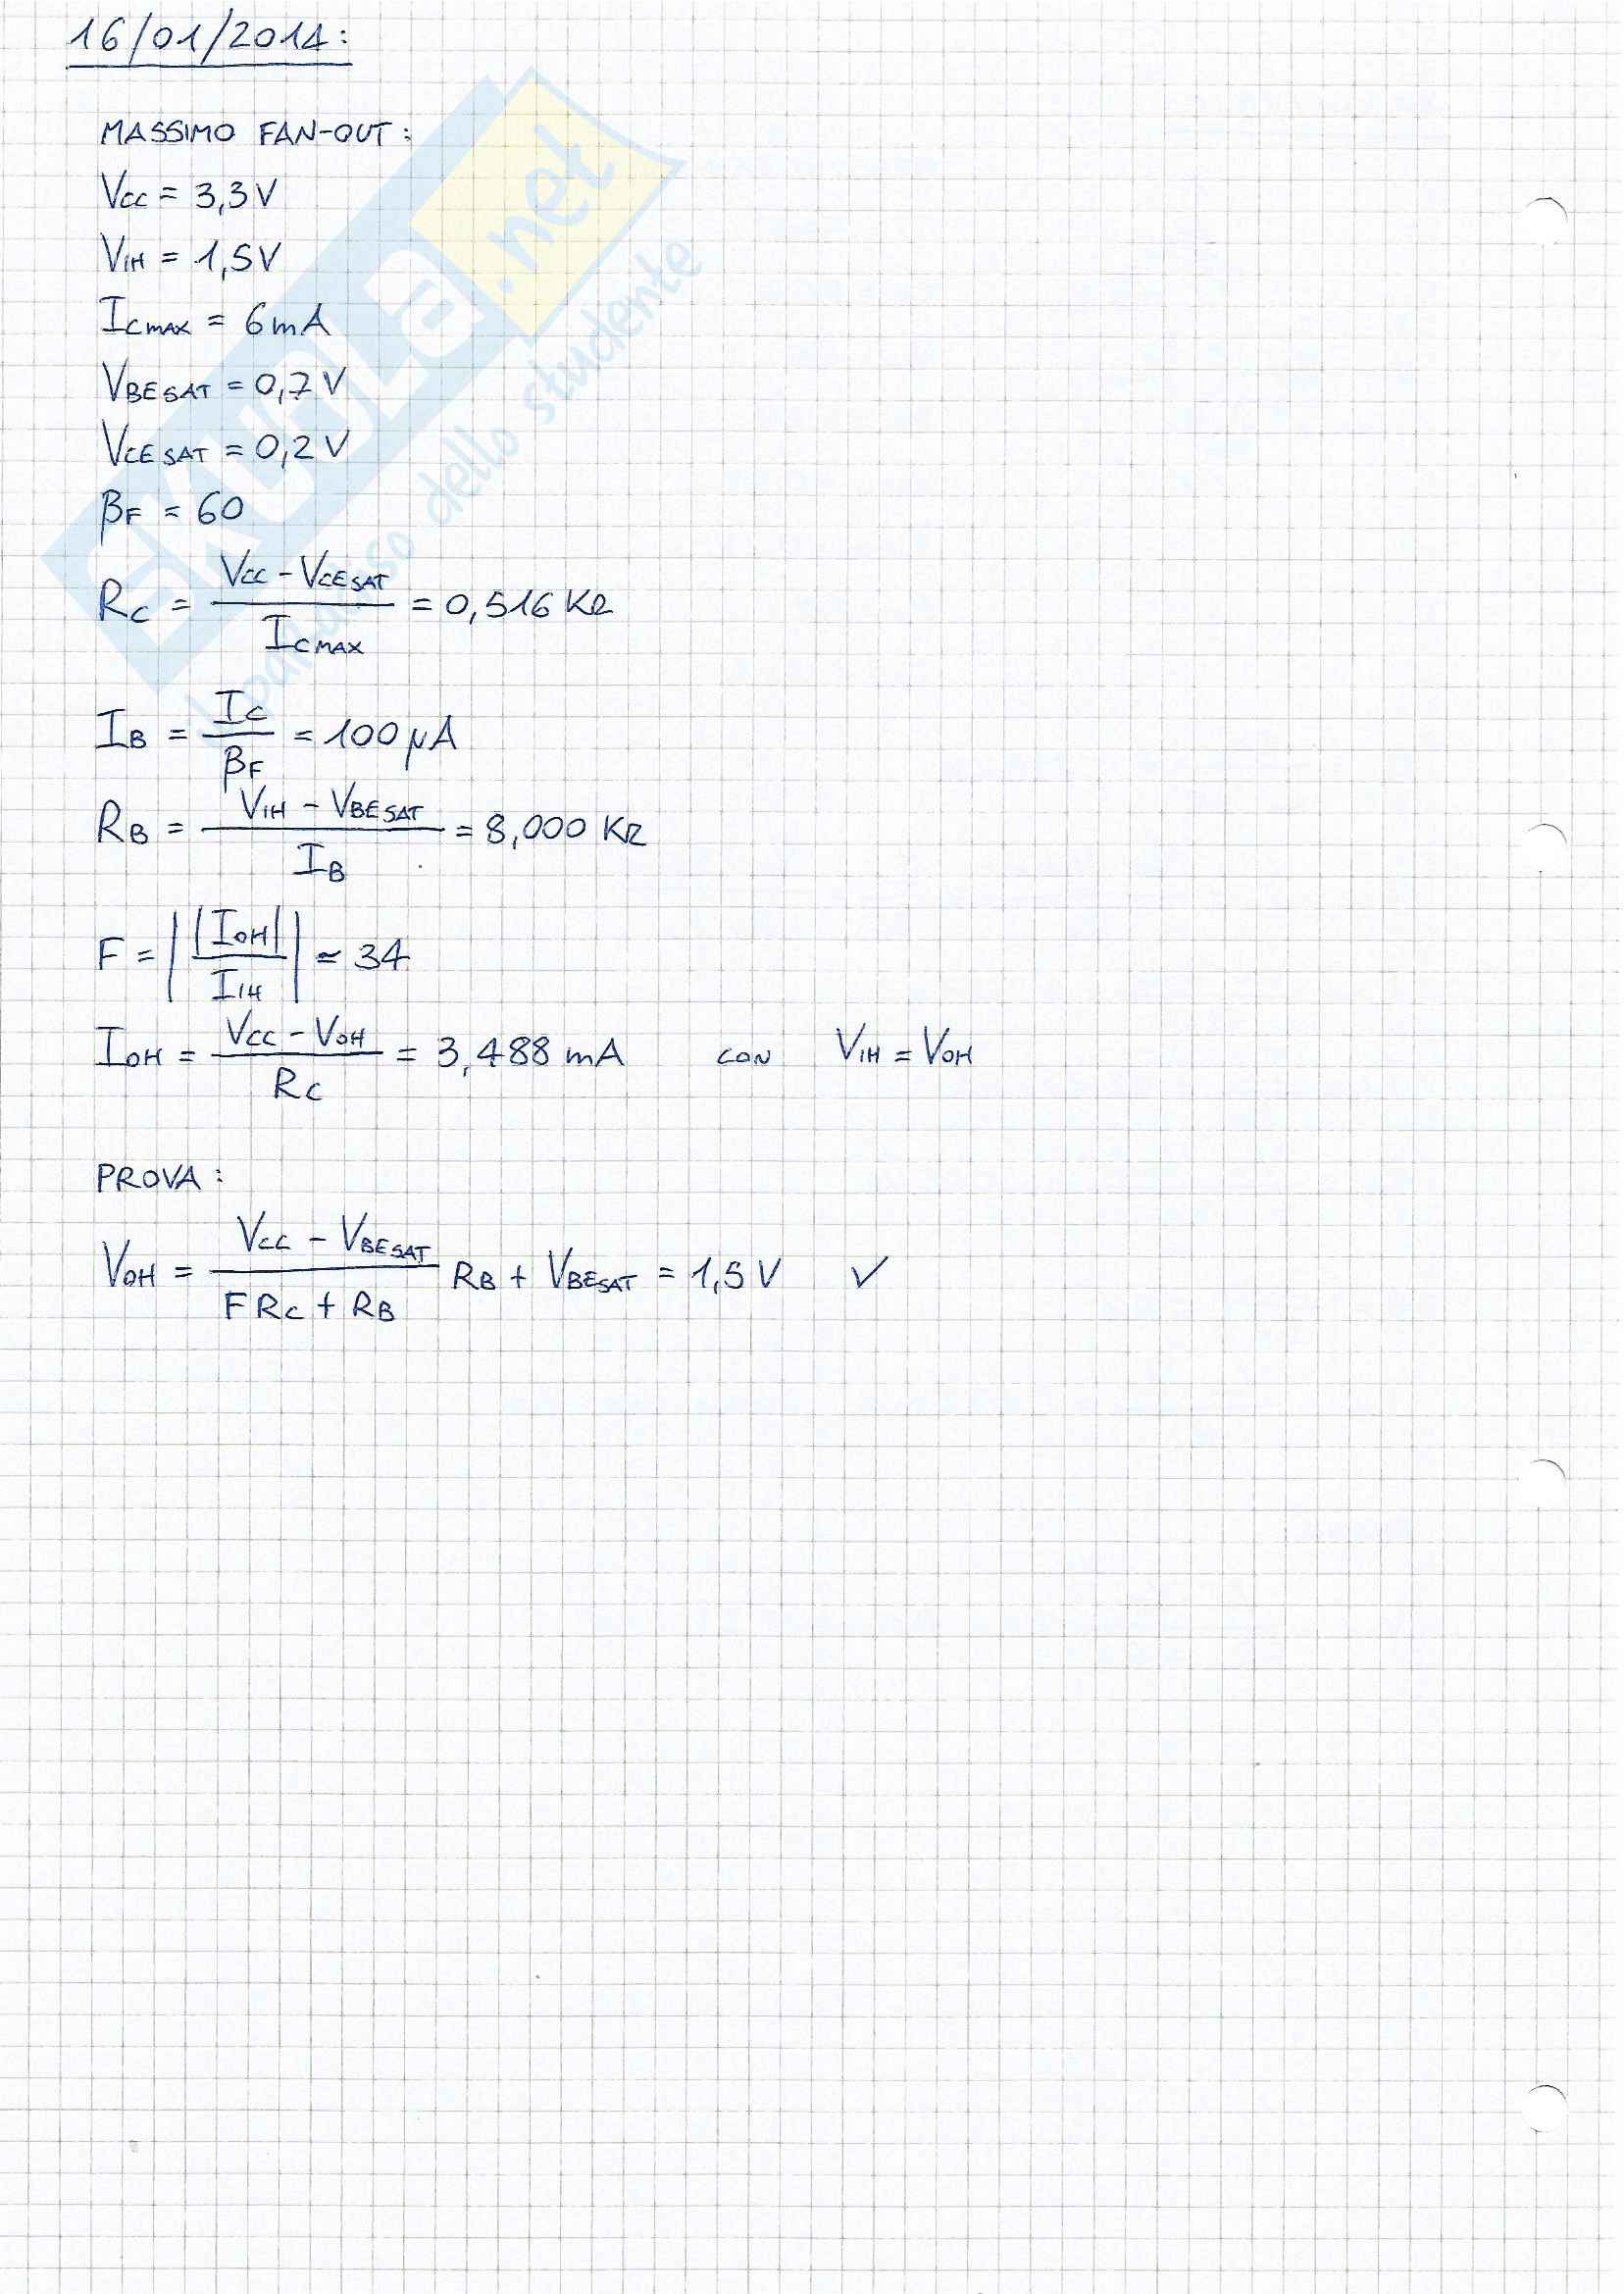 16/01/2014:
MASSIMO FAN-OUT:
Vcc = 3,3V
VIH = 1,5V
ICMAX = 6mA
VBESAT = 0,7V
VCESAT = 0,2V
βF = 60
RC = (VCC - VCESAT) / ICMAX = 0,516 KΩ
IB = IC / βF = 100 μA
RB = (VIH - VBESAT) / IB = 8,000 KΩ
F = | |IOH| / IIH | ≃ 34
IOH = (VCC - VOH) / RC = 3,488 mA con VIH = VOH
PROVA:
VOH = (VCC - VBESAT) / (F RC + RB) RB + VBESAT = 1,5 V ✓
SKUOLA.net
il paradiso dello studente